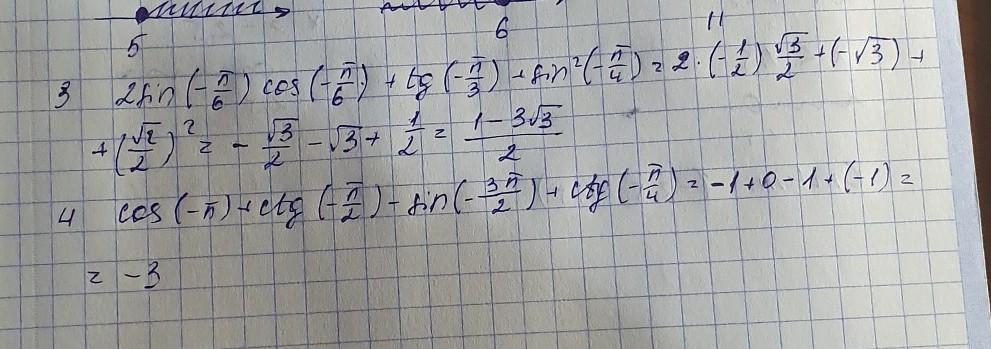 5 6 11
3 2sin(-π/6) cos(-π/6) + tg(-π/3) + sin²(-π/4) = 2·(-1/2) √3/2 + (-√3) +
+ (√2/2)² = - √3/2 - √3 + 1/2 = (1-3√3)/2
4 cos(-π) + ctg(-π/2) - sin(-3π/2) + ctg(-π/4) = -1+0-1+(-1) =
= -3